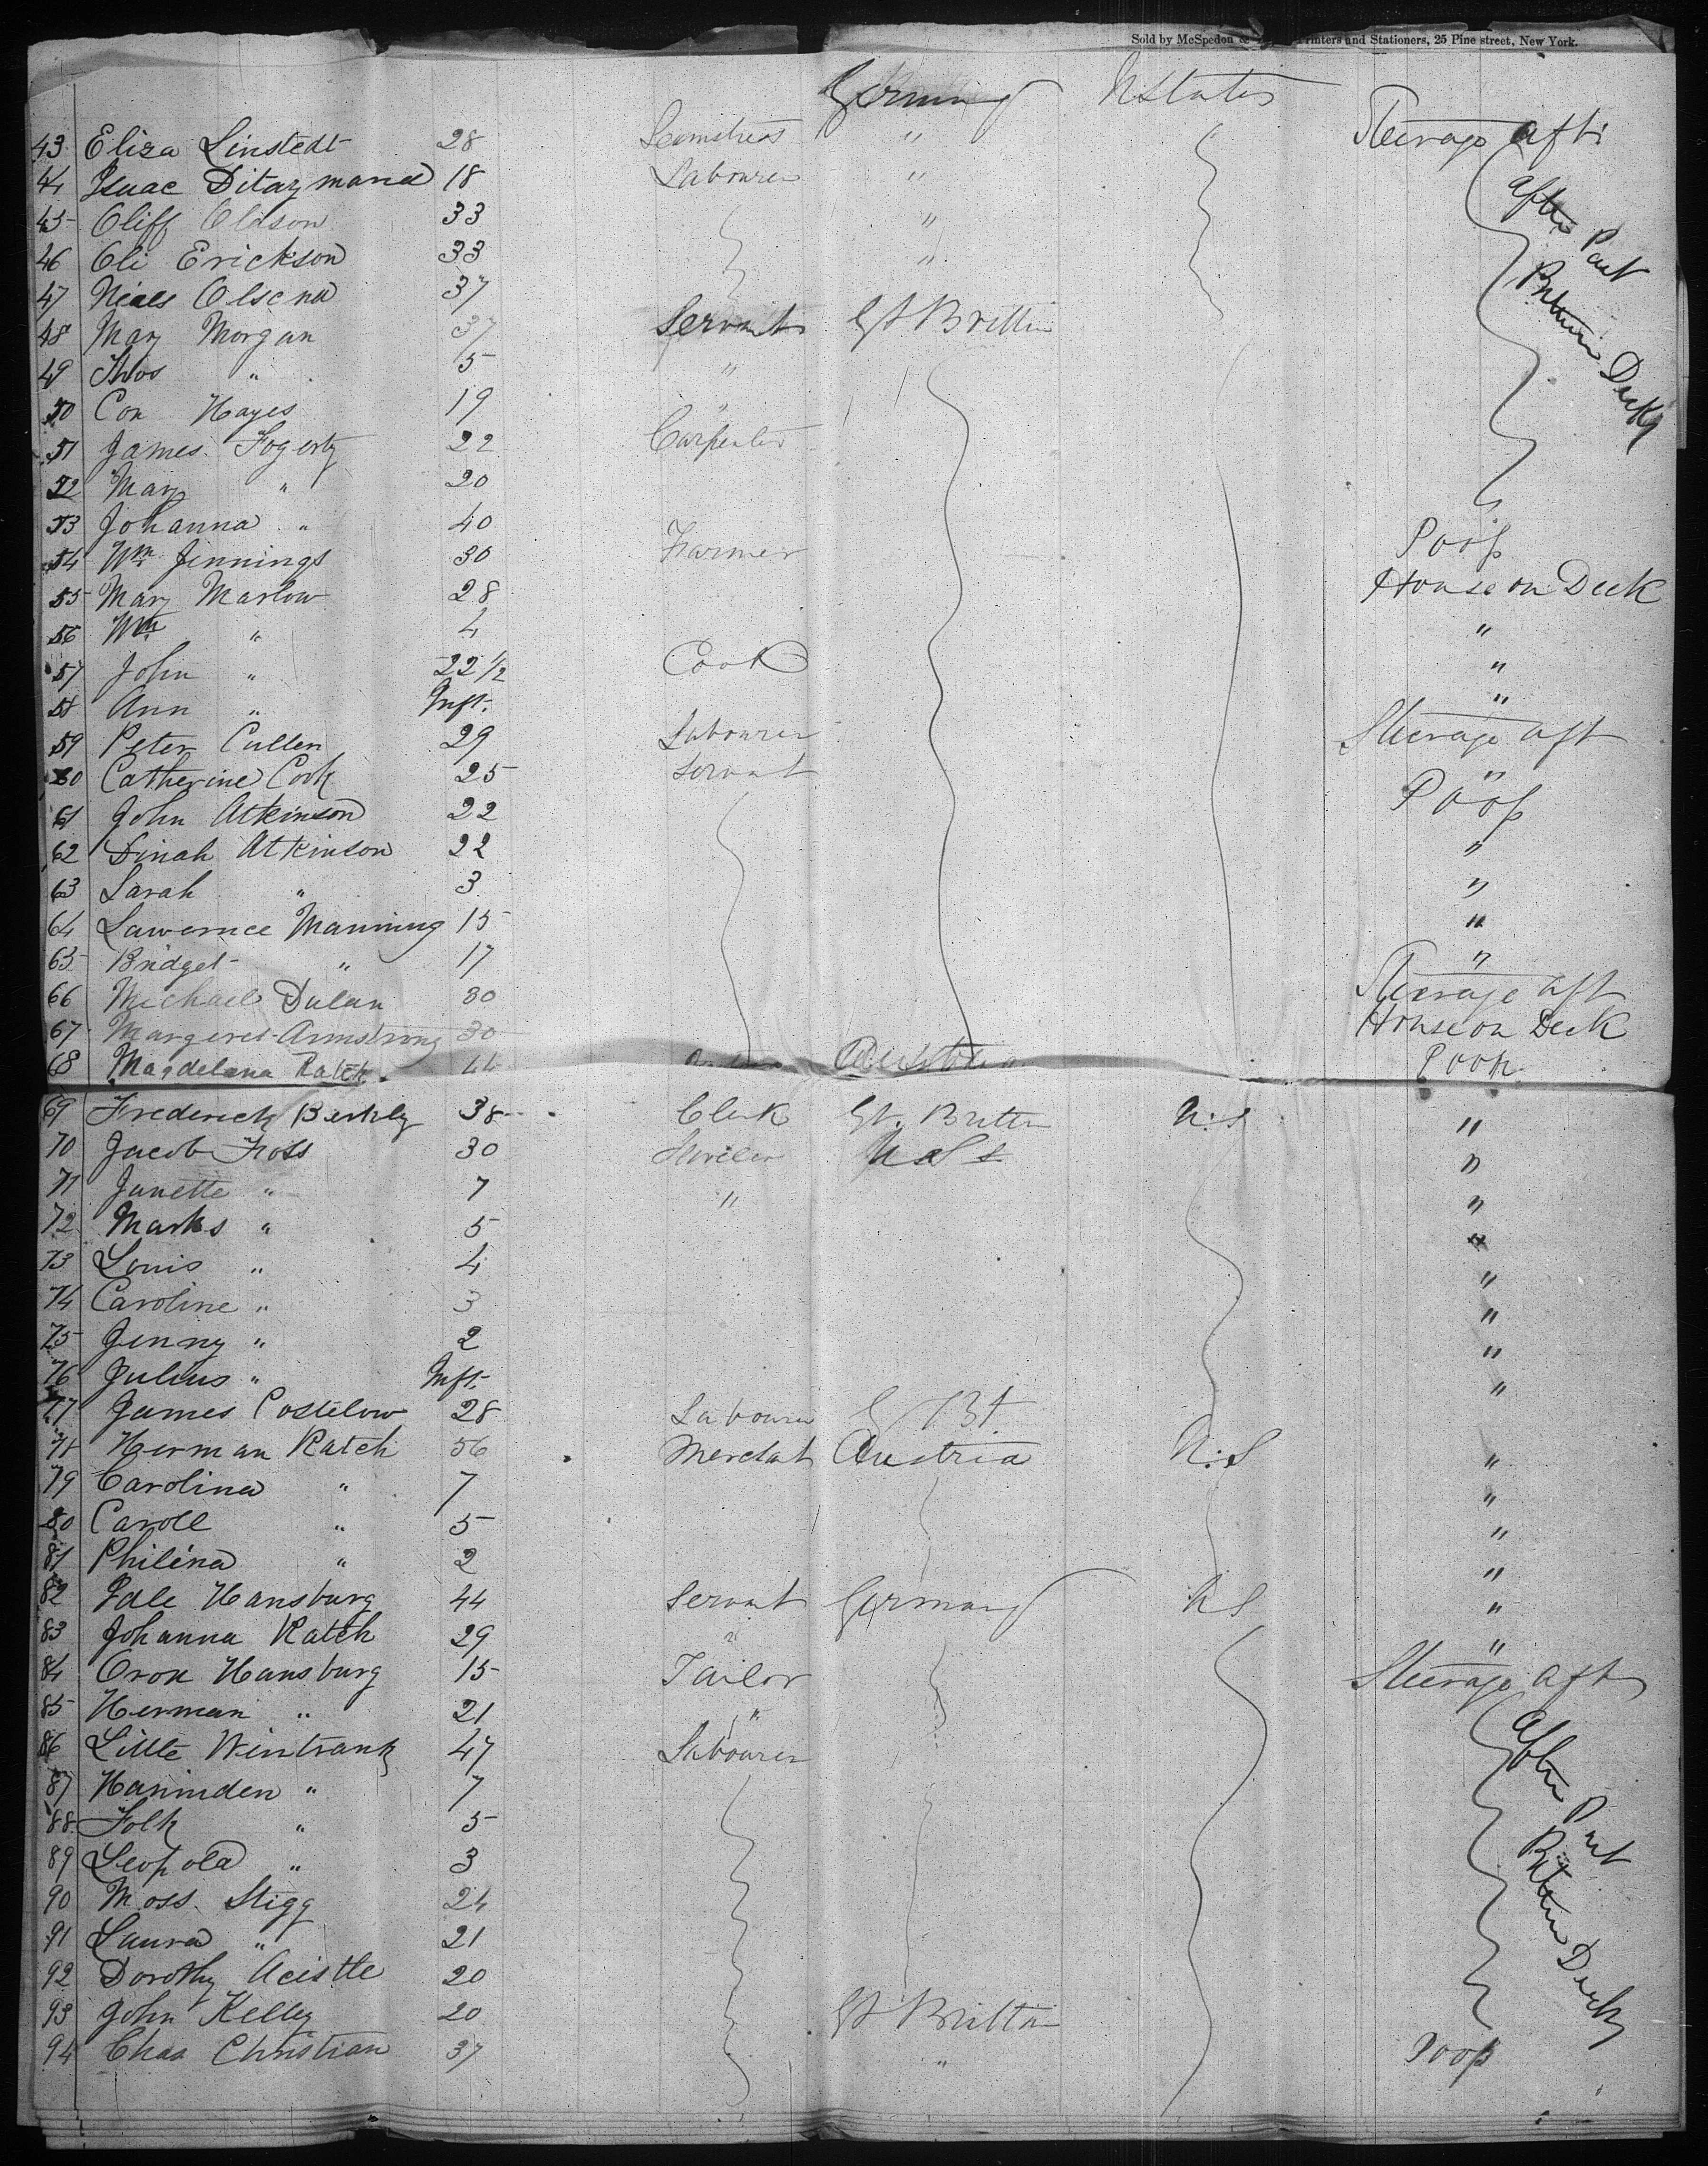 Sold by McSpedon & Printers and Stationers, 25 Pine street, New York.
Germany Ustates
43 Eliza Linstedt 28 Seamstress " Steerage aft
44 Isaac Ditazmand 18 Labourer " after Part Between Decks
45 Cliff Oldson 33 "
46 Oli Erickson 33 "
47 Niels Olsend 37
48 Mary Morgan 37 Servant Gt Brittin
49 Thos " 5 "
50 Con Hayes 19 "
51 James Fogerty 22 Carpenter
52 Mary " 20
53 Johanna " 40
54 Wm Jennings 30 Farmer Poop
55 Mary Marlow 28 House on Deck
56 Wm " 4 "
57 John " 22 1/2 Cook "
58 Ann " Inft. "
59 Peter Cullen 29 Labourer Steerage aft
60 Catherine Cook 25 Servant "
61 John Atkinson 22 Poop
62 Dinah Atkinson 22 "
63 Sarah " 3 "
64 Lawernce Manning 15 "
65 Bridget " 17 "
66 Michael Dulan 30 Steerage aft
67 Margeret Armstrong 30 House on Deck
68 Magdelana Ratch 44 Austria Poop
69 Frederick Berkly 38 Clerk Gt. Brittn U.S "
70 Jacob Foss 30 U S "
71 Janette " 7 " "
72 Marks " 5 "
73 Louis " 4 "
74 Caroline " 3 "
75 Jenny " 2 "
76 Julius " Inft. "
77 James Costelow 28 Labourer G Bt
78 Herman Ratch 56 Merchat Austria U.S "
79 Carolina " 7 "
80 Caroll " 5 "
81 Philina " 2 "
82 Idle Hansburg 44 Servant Germany U S "
83 Johanna Ratch 29 " "
84 Oron Hansburg 15 Tailor Steerage aft
85 Herman " 21 " After Part Between Decks
86 Little Wintrank 47 Labourer
87 Haninden " 7
88 Folk " 5
89 Leopold " 3
90 Moss Stigg 24
91 Laura " 21
92 Dorothy Acistle 20
93 John Kelley 20 Gt Brittn
94 Chas Christian 37 " Poop